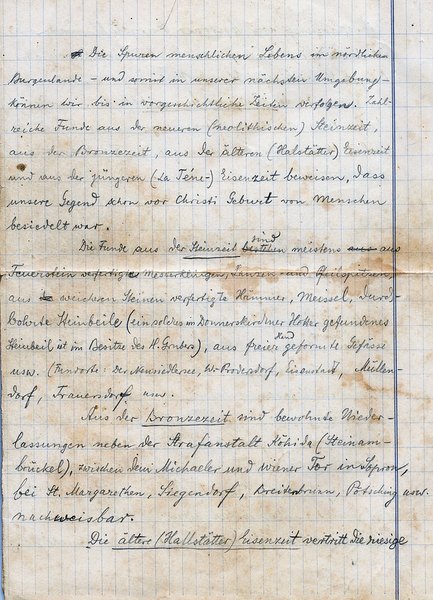 Die Spuren menschlichen Lebens im nördlichen
Burgenlande - und somit in unserer nächsten Umgebung -
können wir bis in vorgeschichtliche Zeiten verfolgen. Zahl-
reiche Funde aus der neueren (neolithischen) Steinzeit,
aus der Bronzezeit, aus der älteren (Halstätter) Eisenzeit
und aus der jüngeren (La Téne-) Eisenzeit beweisen, dass
unsere Gegend schon vor Christi Geburt von Menschen
besiedelt war.
Die Funde aus der Steinzeit sind meistens aus
Feuerstein verfertigte Messerklingen, Lanzen- und Pfeilspitzen,
aus weicheren Steinen verfertigte Hämmer, Meissel, durch-
bohrte Steinbeile (ein solches im Donnerskirchner Hotter gefundenes
Steinbeil ist im Besitze des H. Grubers), aus freier Hand geformte Gefässe
usw. (Fundorte: der Neusiedlersee, Wr. Prodersdorf, Eisenstadt, Müllen-
dorf, Trauersdorf usw.
Aus der Bronzezeit sind bewohnte Nieder-
lassungen neben der Strafanstalt Köhida (Steinam-
brückel), zwischen dem Michaeler und wiener Tor in Sopron,
bei St. Margarethen, Siegendorf, Breitenbrunn, Pötsching usw.
nachweisbar.
Die ältere (Hallstätter) Eisenzeit vertritt die riesige